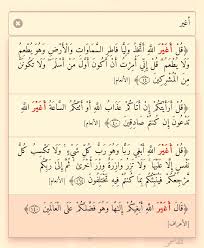 أغير
﴿قُلْ أَغَيْرَ اللَّهِ أَتَّخِذُ وَلِيًّا فَاطِرِ السَّمَاوَاتِ وَالْأَرْضِ وَهُوَ يُطْعِمُ
وَلَا يُطْعَمُ قُلْ إِنِّي أُمِرْتُ أَنْ أَكُونَ أَوَّلَ مَنْ أَسْلَمَ وَلَا تَكُونَنَّ
مِنَ الْمُشْرِكِينَ ﴿١٤﴾ [الأنعام]
﴿قُلْ أَرَأَيْتَكُمْ إِنْ أَتَاكُمْ عَذَابُ اللَّهِ أَوْ أَتَتْكُمُ السَّاعَةُ أَغَيْرَ اللَّهِ
تَدْعُونَ إِنْ كُنْتُمْ صَادِقِينَ ﴿٤٠﴾ [الأنعام]
﴿قُلْ أَغَيْرَ اللَّهِ أَبْغِي رَبًّا وَهُوَ رَبُّ كُلِّ شَيْءٍ وَلَا تَكْسِبُ كُلُّ
نَفْسٍ إِلَّا عَلَيْهَا وَلَا تَزِرُ وَازِرَةٌ وِزْرَ أُخْرَى ثُمَّ إِلَى رَبِّكُمْ
مَرْجِعُكُمْ فَيُنَبِّئُكُمْ بِمَا كُنْتُمْ فِيهِ تَخْتَلِفُونَ ﴿١٦٤﴾ [الأنعام]
﴿قَالَ أَغَيْرَ اللَّهِ أَبْغِيكُمْ إِلَهًا وَهُوَ فَضَّلَكُمْ عَلَى الْعَالَمِينَ ﴿١٤٠﴾
[الأعراف]